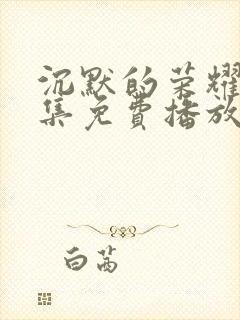 沉默的荣耀
集免费播放
白茜